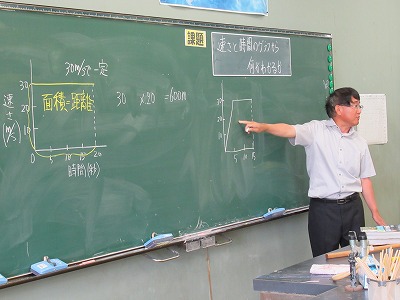 課題
速さと時間のグラフから
何がわかるか
30m/sで一定
速さ
(m/s)
30
20
10
面積=距離
0
5
10
15
20
時間(秒)
30 ×20 =600m
30
20
10
5
10
15